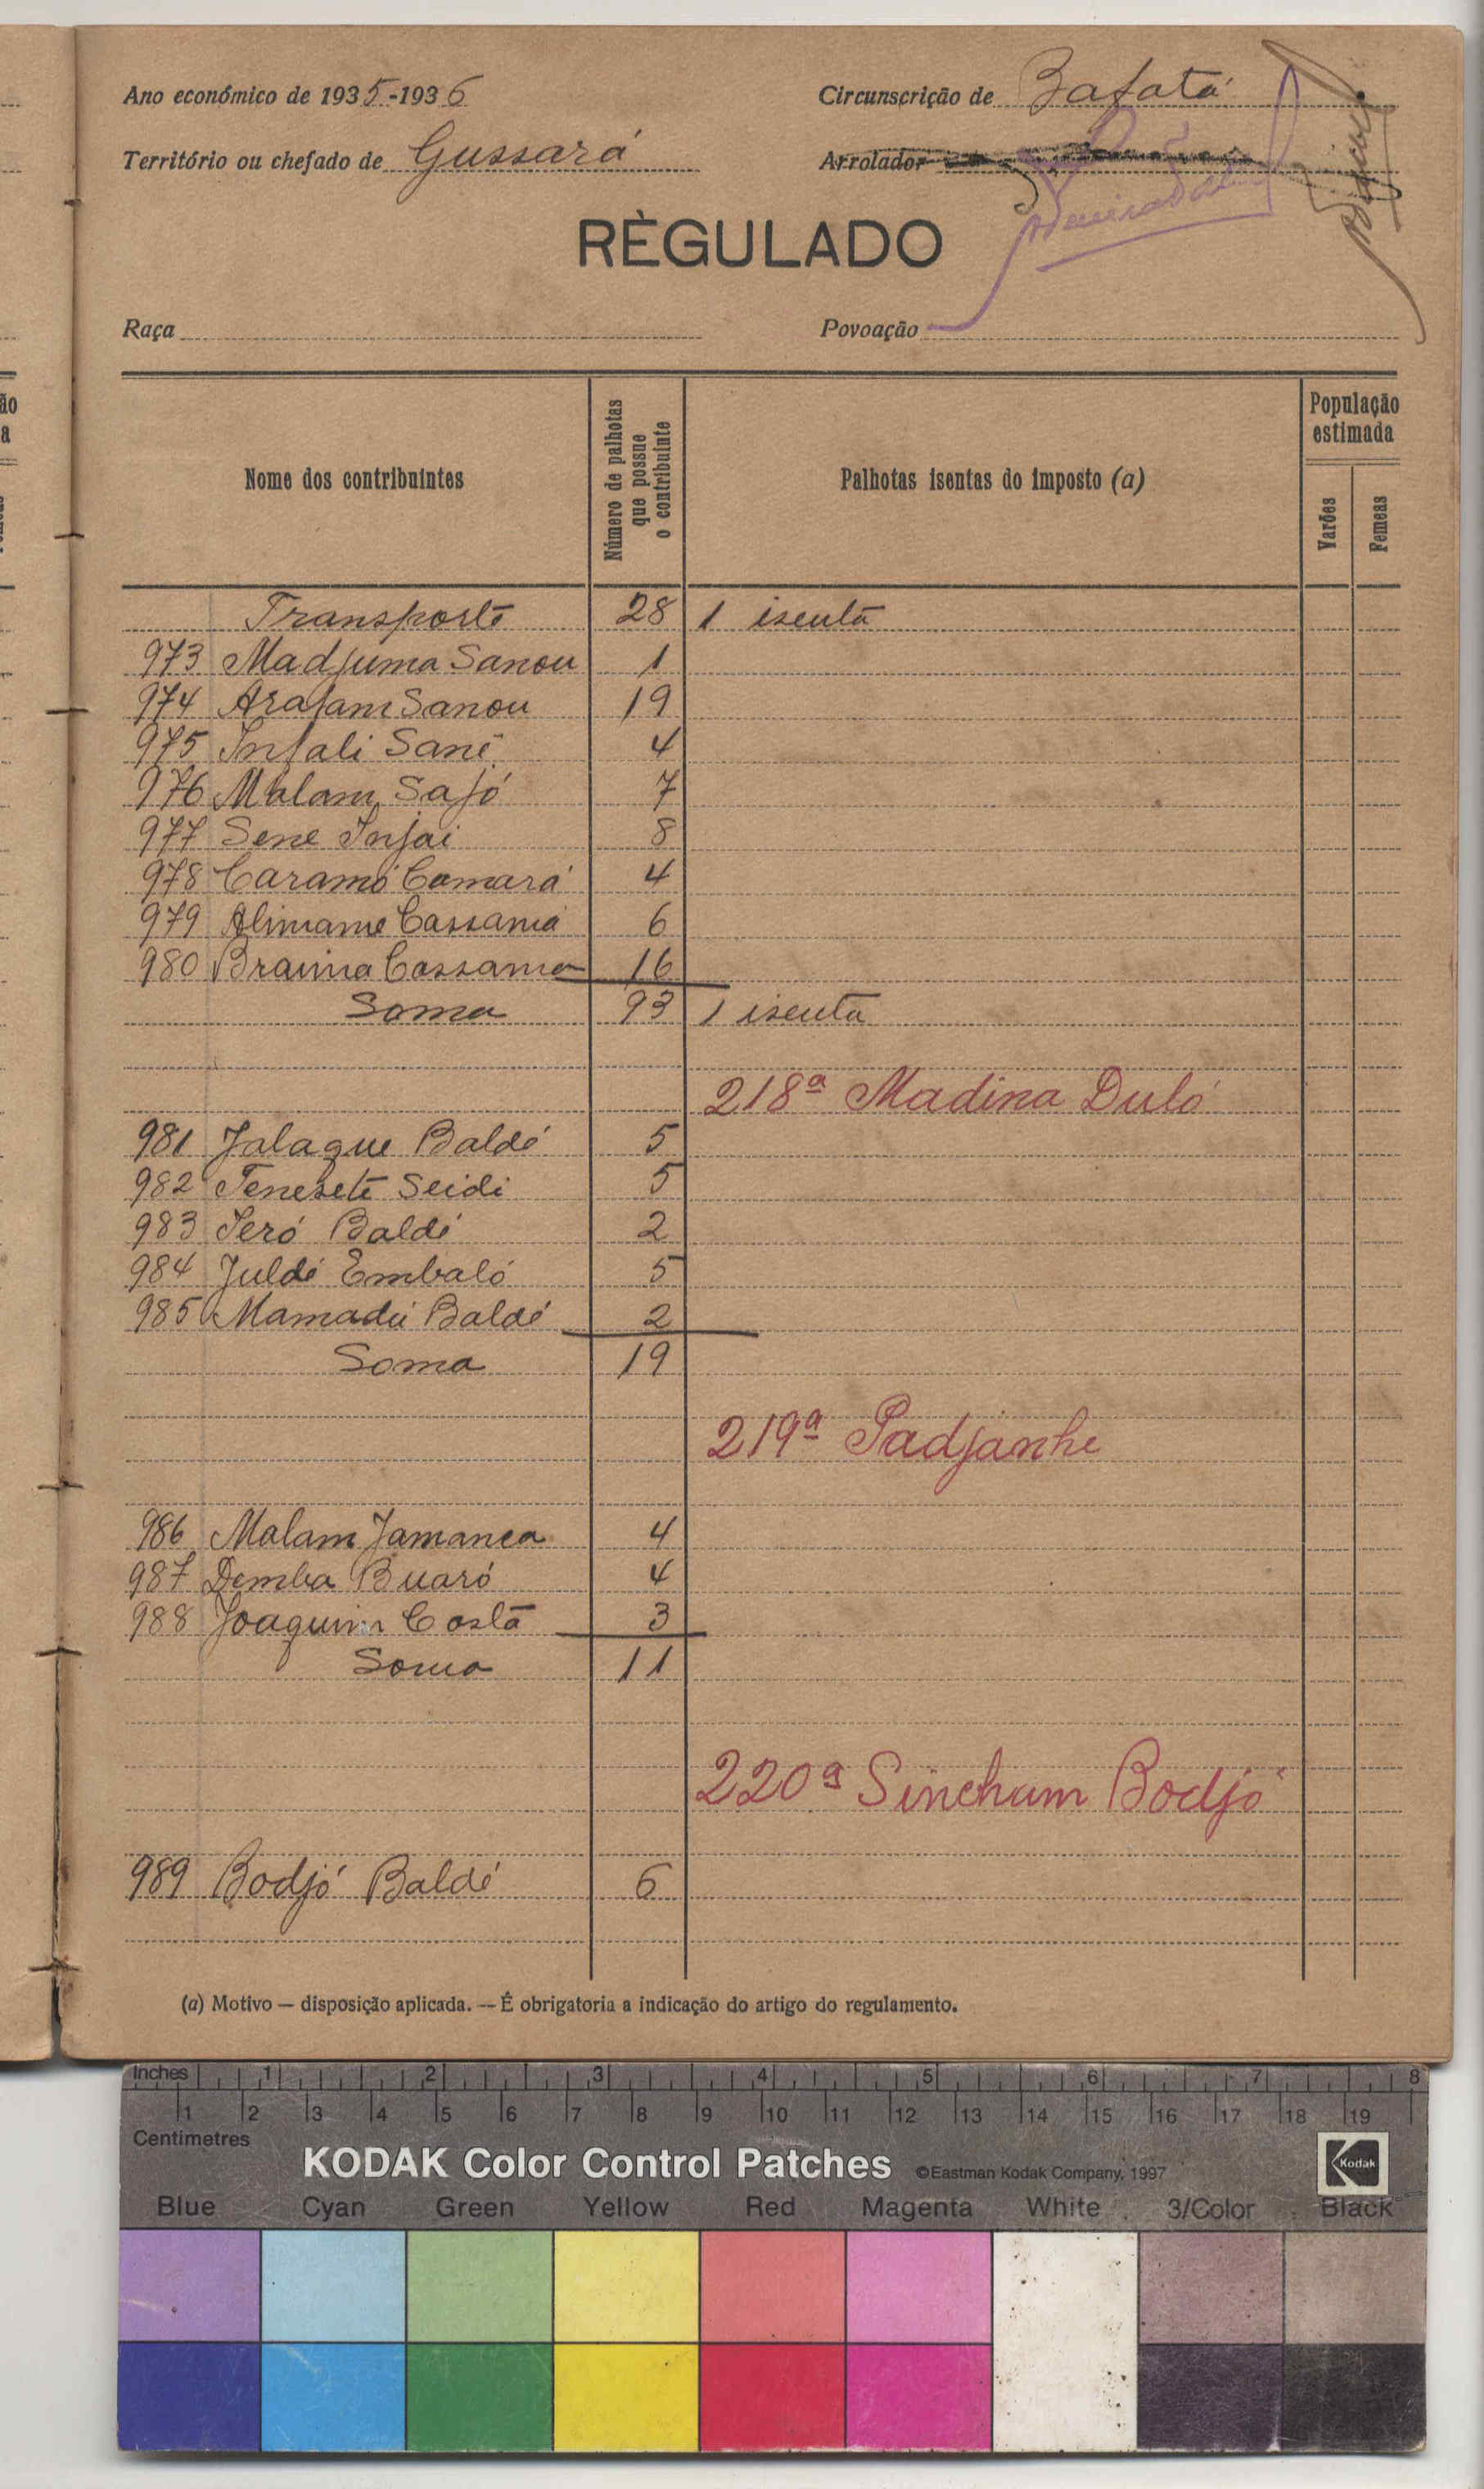 Ano económico de 1935-1936
Circunscrição de Bafatá
Território ou chefado de Gussará
Arrolador
RÈGULADO
Raça
Povoação
Nome dos contribuintes
Número de palhotas que possue o contribuinte
Palhotas isentas do imposto (a)
População estimada
Varões
Femeas
Transporte 28 1 isenta
973 Madjuma Sanou 1
974 Arafam Sanou 19
975 Infali Sané 4
976 Malam Safó 7
977 Sene Injai 8
978 Caramó Camará 4
979 Alimame Cassamá 6
980 Braima Cassama 16
Soma 93 1 isenta
218ª Madina Duló
981 Jalaque Baldé 5
982 Seidi 5
983 Ieró Baldé 2
984 Juldé Embaló 5
985 Mamadú Baldé 2
Soma 19
219ª Padjanhe
986 Malam Jamanca 4
987 Demba Buaró 4
988 Joaquim Costa 3
Soma 11
220ª Sincham Bodjó
989 Bodjó Baldé 6
(a) Motivo — disposição aplicada. — É obrigatoria a indicação do artigo do regulamento.
Inches 1 2 3 4 5 6 7 8
1 2 3 4 5 6 7 8 9 10 11 12 13 14 15 16 17 18 19
Centimetres
KODAK Color Control Patches ©Eastman Kodak Company, 1997 Kodak
Blue Cyan Green Yellow Red Magenta White 3/Color Black